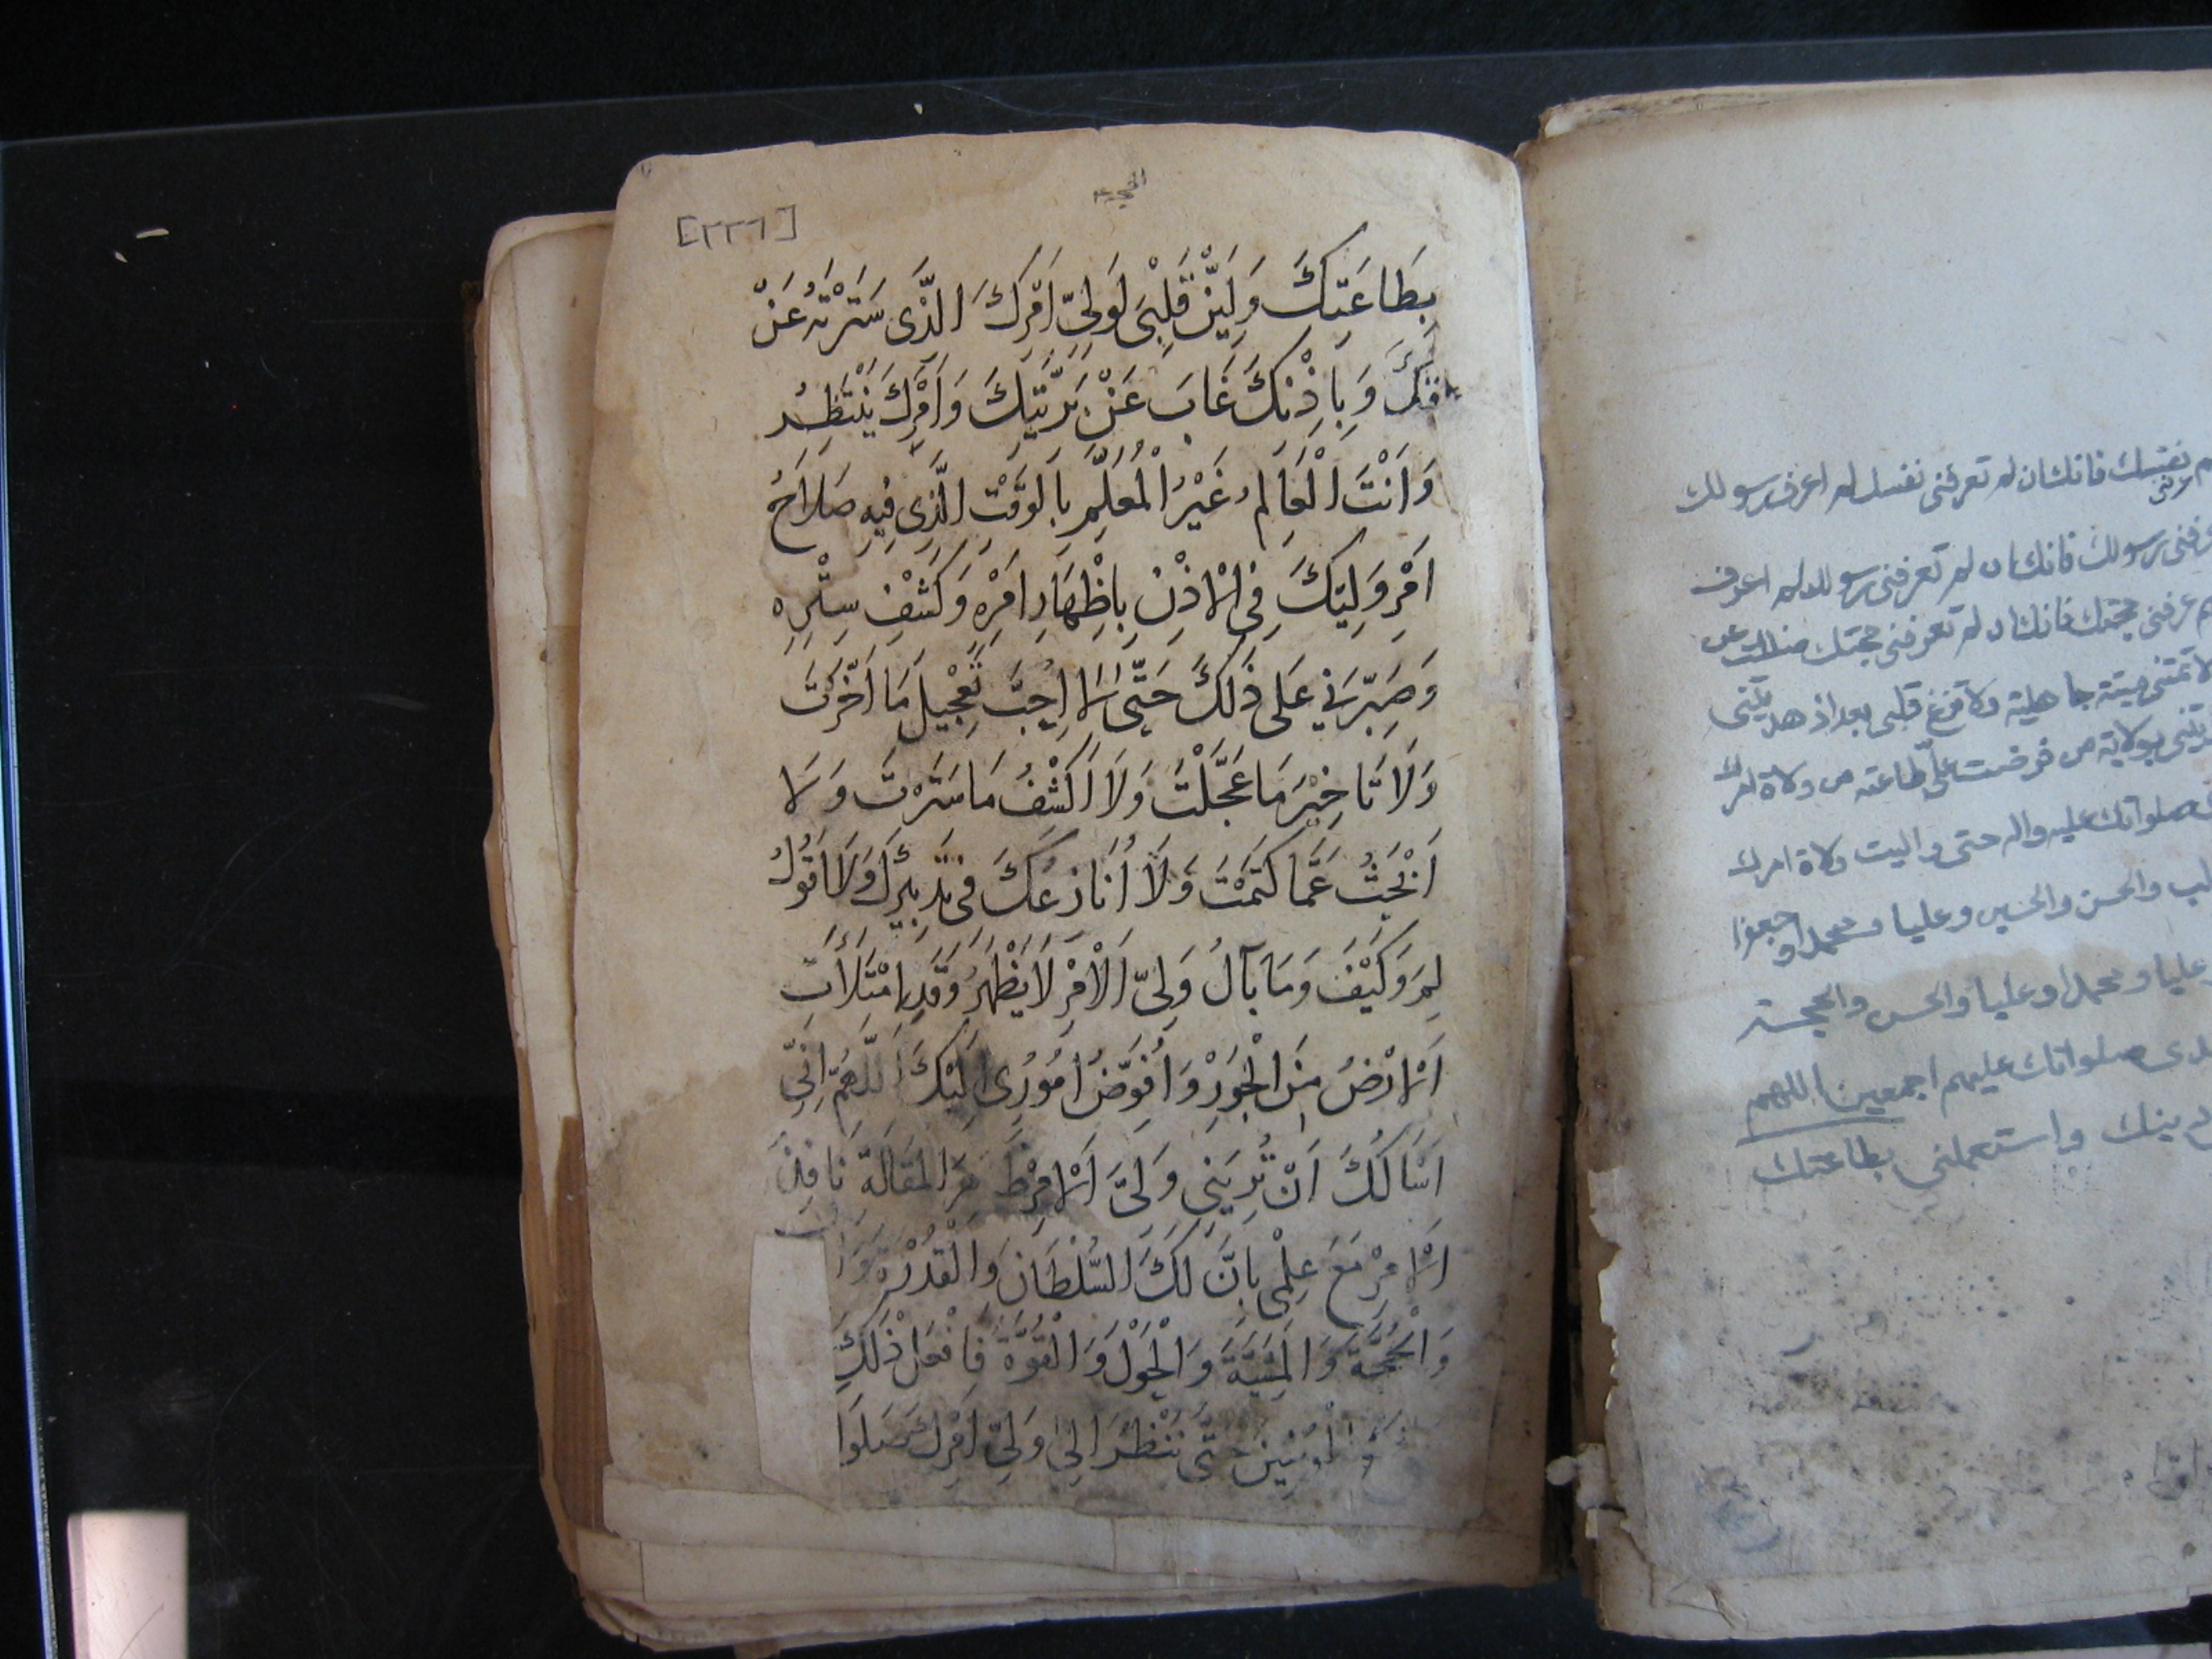 نفسك فانك ان لم تعرفنى نفسك لم اعرف رسولك
رسولك فانك ان لم تعرفنى رسولك لم اعرف
عرفنى حجتك فانك ان لم تعرفنى حجتك ضللت عن
لا تمتنى ميتة جاهلية ولا تزغ قلبى بعد اذ هديتنى
بولاية من فرضت علىّ طاعته من ولاة امرك
صلواتك عليه واله حتى واليت ولاة امرك
والحسن والحسين وعليا ومحمدا وجعفرا
عليا ومحمدا وعليا والحسن والحجة
صلواتك عليهم اجمعين اللهم
دينك واستعملنى بطاعتك
[٢٢٦]
بِطَاعَتِكَ وَلَيِّنْ قَلْبِى لِوَلِىِّ اَمْرِكَ الَّذِى سَتَرْتَهُ عَنْ
خلقك وَبِاِذْنِكَ غَابَ عَنْ بَرِيَّتِكَ وَاَمْرَكَ يَنْتَظِرُ
وَاَنْتَ الْعَالِمُ غَيْرُ الْمُعَلَّمِ بِالْوَقْتِ الَّذِى فِيهِ صَلَاحُ
اَمْرِ وَلِيِّكَ فِى الْاِذْنِ بِاِظْهَارِ اَمْرِهِ وَكَشْفِ سِتْرِهِ
وَصَبِّرْنِى عَلى ذٰلِكَ حَتّى لَا اُحِبَّ تَعْجِيلَ مَا اَخَّرْتَ
وَلَا تَاخِيْرَ مَا عَجَّلْتَ وَلَا اَكْشِفُ مَا سَتَرْتَ وَلَا
اَبْحَثُ عَمَّا كَتَمْتَ وَلَا اُنَازِعُكَ فِى تَدْبِيْرِكَ وَلَا اَقُولُ
لِمَ وَكَيْفَ وَمَا بَآلُ وَلِىِّ الْاَمْرِ لَا يَظْهَرُ وَقَدِ امْتَلَأَتِ
الْاَرْضُ مِنَ الْجَوْرِ وَاُفَوِّضُ اُمُورِى اِلَيْكَ اَللّٰهُمَّ اِنِّى
اَسْاَلُكَ اَنْ تُرِيَنِى وَلِىَّ الْاَمْرِ الْمَقَالَةِ نَافِذَ
الْاَمْرِ مَعَ عِلْمِى بِاَنَّ لَكَ السُّلْطَانَ وَالْقُدْرَةَ وَا
وَالْحُجَّةَ وَالْمَشِيَّةَ وَالْحَوْلَ وَالْقُوَّةَ فَافْعَلْ ذٰلِكَ
الْمُؤْمِنِينَ حَتّى نَنْظُرَ اِلٰى وَلِىِّ اَمْرِكَ صَلَوَا